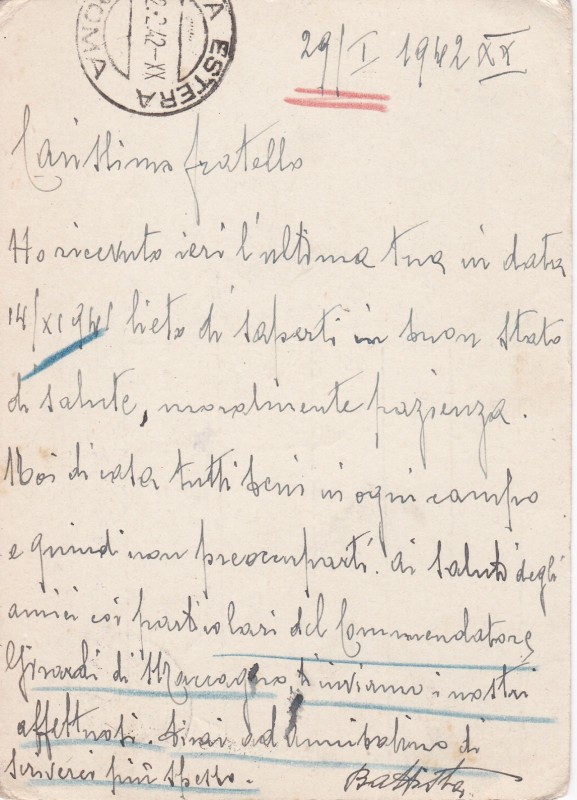 A ESTERA ROMA
2.2.42-XX
29/I 1942 XX
Carissimo fratello
Ho ricevuto ieri l'ultima tua in data
14/XI 941 lieto di saperti in buon stato
di salute, moralmente pazienza.
Noi di casa tutti beni in ogni campo
e quindi non preoccuparti. Ai saluti degli
amici coi particolari del Commendatore
Girardi di Maccagno, ti inviamo i nostri
affettuosi. Dirai ad Annibalino di
scriverci più spesso. Battista